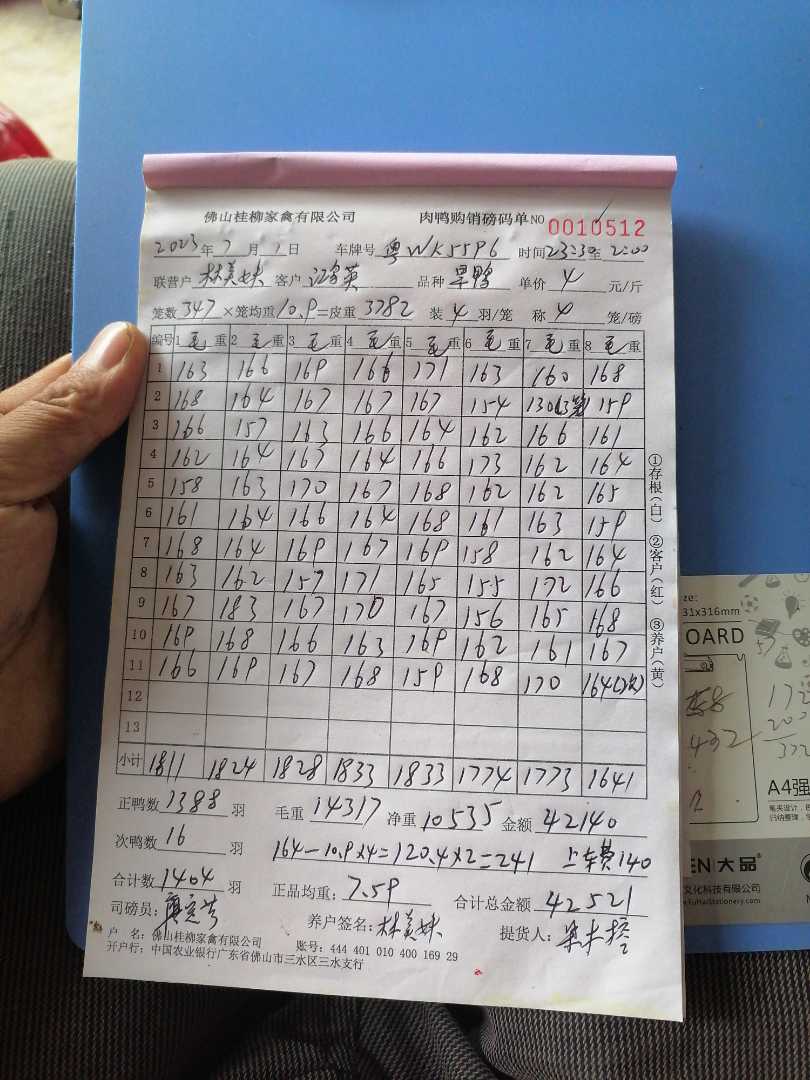 佛山桂柳家禽有限公司 肉鸭购销磅码单 NO 0010512
2023年7月1日 车牌号 粤WK5596 时间23:30至2:00
联营户 林美妹 客户 品种 旱鸭 单价 4 元/斤
笼数 347 ×笼均重 10.9 =皮重 3782 装 4 羽/笼 称 4 笼/磅
编号 1 毛重 2 毛重 3 毛重 4 毛重 5 毛重 6 毛重 7 毛重 8 毛重
1 163 166 169 166 171 163 160 168
2 168 164 167 167 167 154 130(3笼) 159
3 166 157 163 166 164 162 166 161
4 162 164 167 164 166 173 162 164
5 158 163 170 167 168 162 162 165
6 161 164 166 164 168 161 163 159
7 168 164 169 167 169 158 162 164
8 163 162 157 171 165 155 172 166
9 167 183 167 170 167 156 165 168
10 169 168 166 163 169 162 161 167
11 166 169 167 168 159 168 170 164(次)
12
13
小计 1811 1824 1828 1833 1833 1774 1773 1641
正鸭数 1388 羽 毛重 14317 净重 10535 金额 42140
次鸭数 16 羽 164-10.9×4=120.4×2=241 上车费140
合计数 1404 羽 正品均重: 7.59 合计总金额 42521
司磅员: 养户签名: 林美妹 提货人:
户 名: 佛山桂柳家禽有限公司 账号: 444 401 010 400 169 29
开户行: 中国农业银行广东省佛山市三水区三水支行
①存根(白) ②客户(红) ③养户(黄)
ze:
31x316mm
OARD
432
172
200
372
A4强
笔夹设计,
归纳整理,
EN 大品
文化科技有限公司
eFuHaiStationery.com